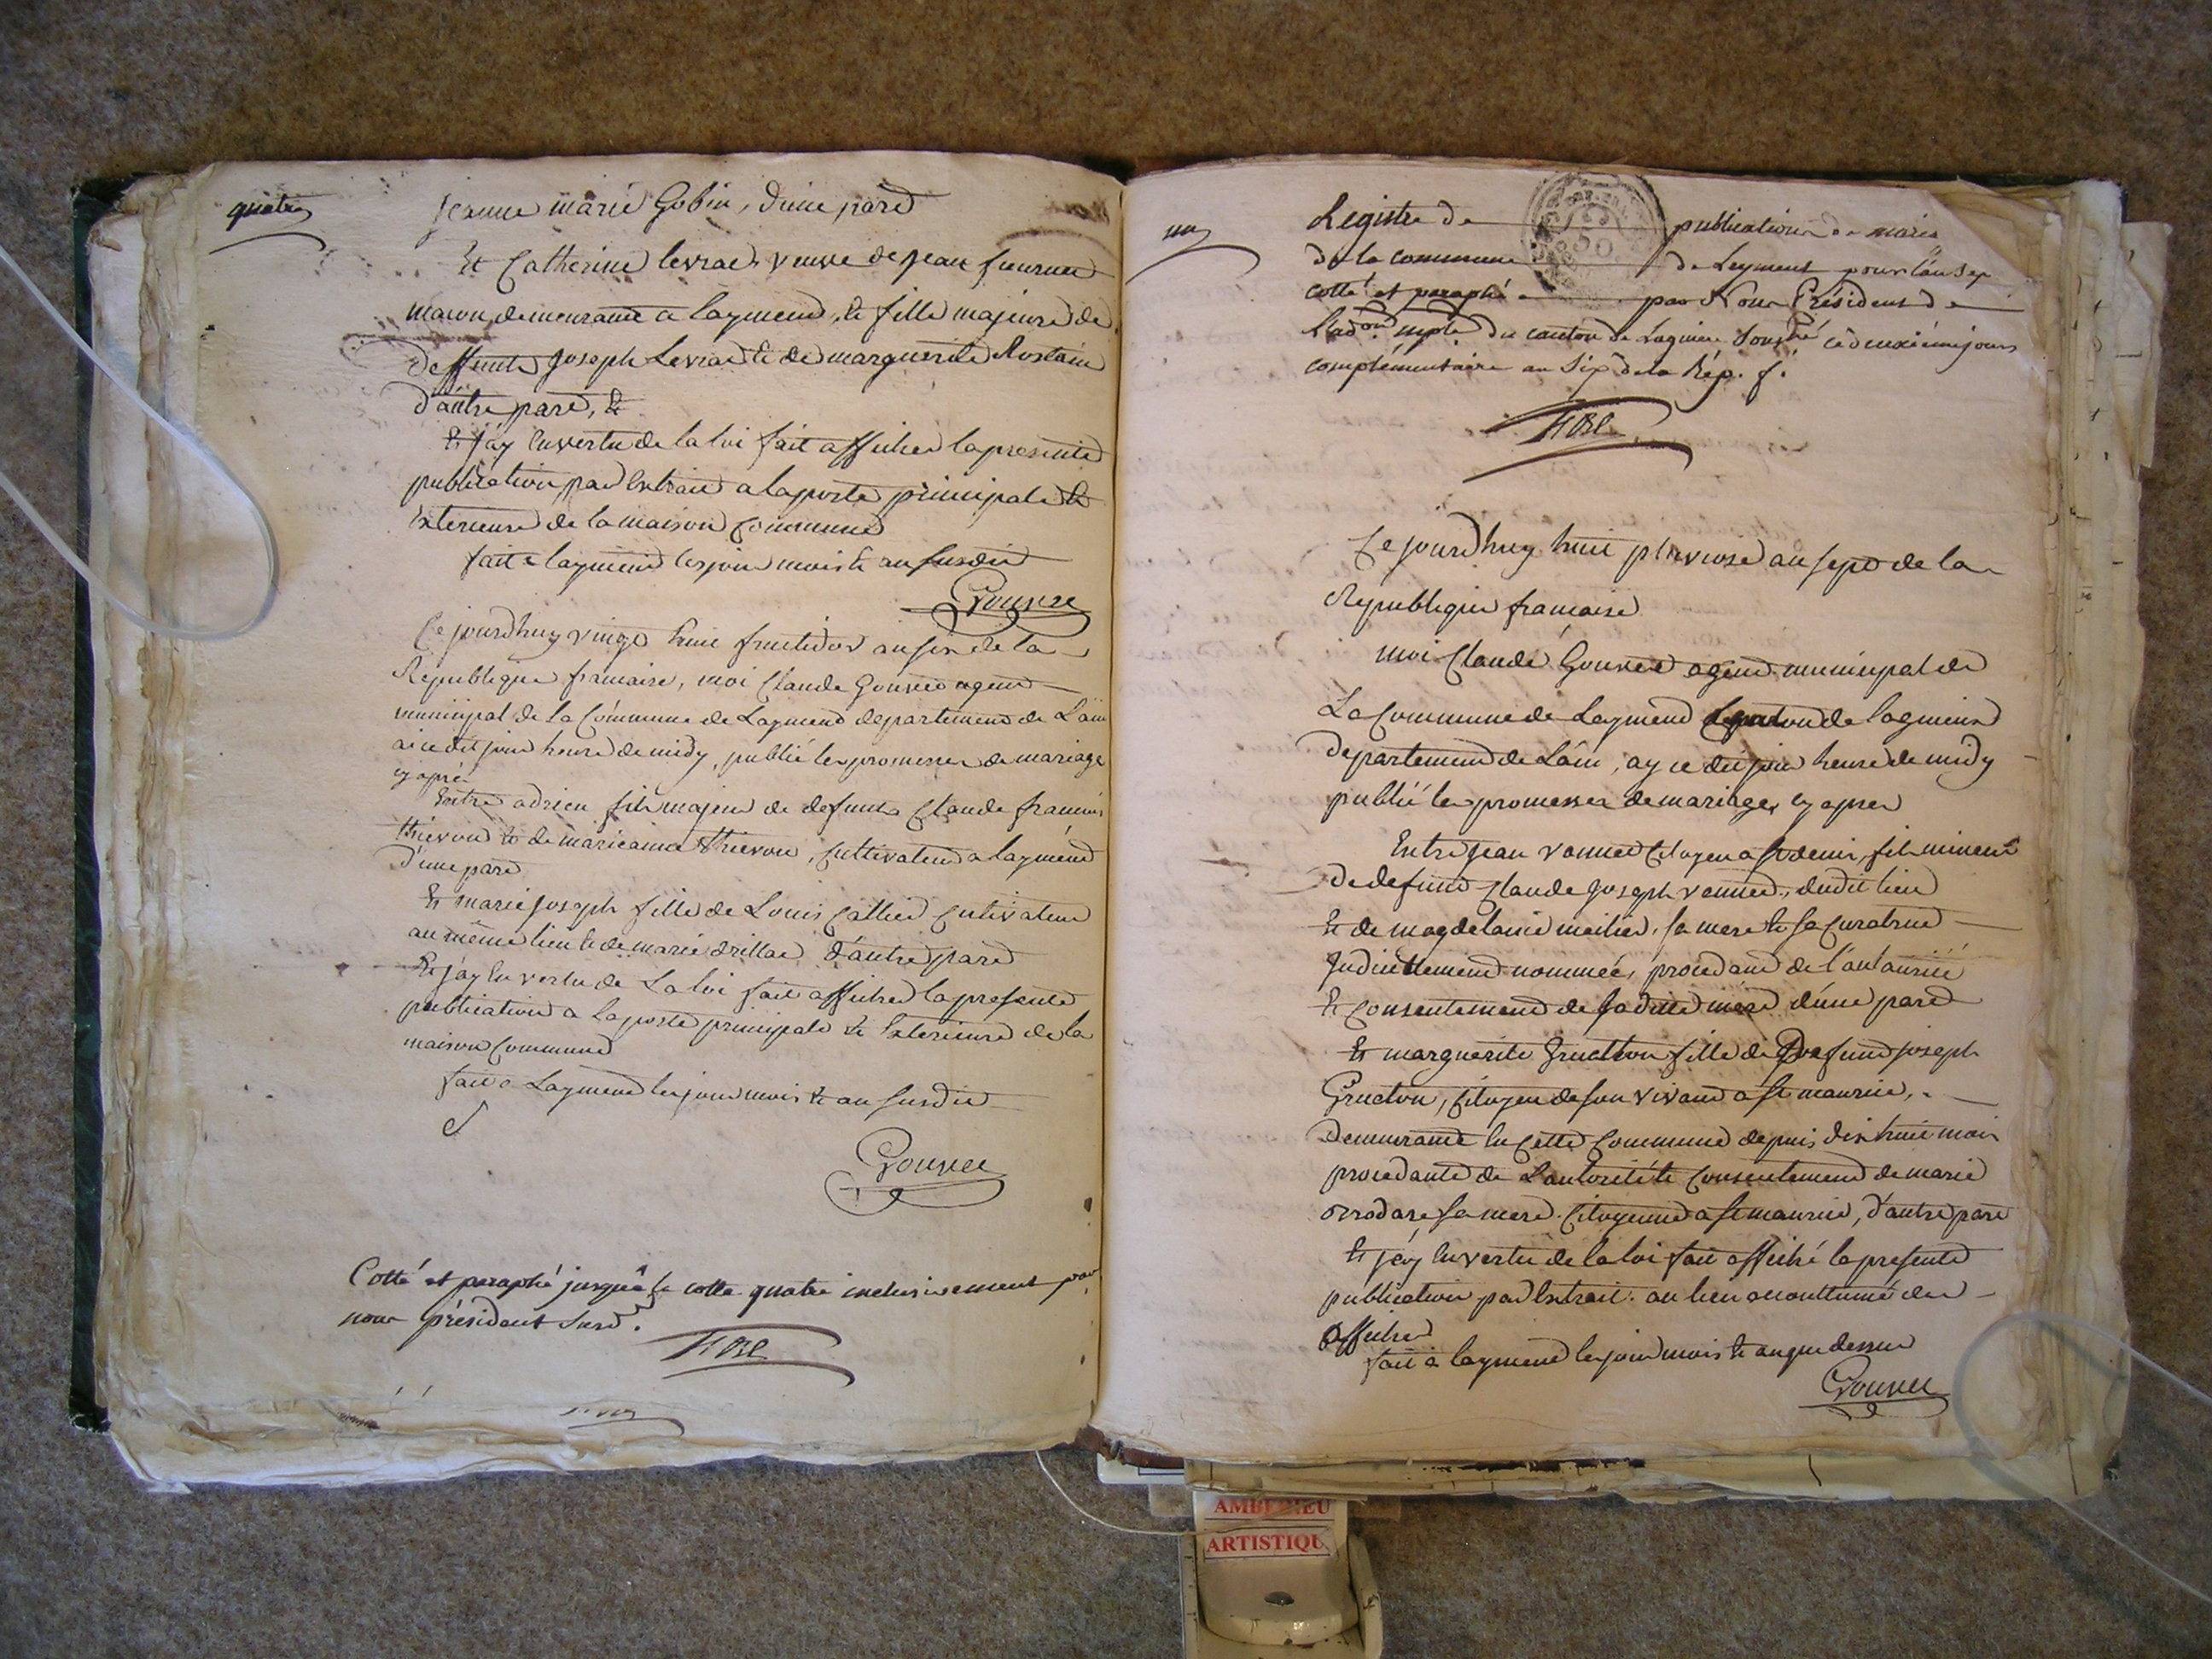 quatre
Jeanne marie Gobin, d'une part
Et Catherine levrat veuve de jean fournier
macon demeurante a laymend, & fille majeure de
deffunts joseph Levrat & de marguerite Rostain
d'autre part, &
& j'ay En vertu de la loi fait afficher la presente
publication par Extrait a la porte principale &
Exterieure de la maison Commune
fait a laymend les jour mois & an susdit
Gouvee
Ce jourd'huy vingt huit fructidor an six de la
Republique francaise, moi Claude Gouvee agent
municipal de la Commune de Laymend departement de L'ain
ai ce dit jour heure de midy, publié les promesses de mariage
cy après
Entre adrien fils majeur de defunts Claude francois
thievon & de marieanne thievon, Cultivateur a laymend
d'une part
Et marie joseph fille de Louis Cattier Cultivateur
au même lieu & de marie drillat d'autre part
& j'ay En vertu de La loi fait afficher la presente
publication a la porte principale & Exterieure de la
maison Commune
fait a Laymend les jour mois & an susdit
Gouvee
Cotté et paraphé jusqu'à la cotte quatre inclusivement par
nous président susd.
un
Registre de publication de mariā
de la commune de Leyment pour l'an sep
cotté et paraphé par Nous Président de
l'adon. mple. du canton de Lagnieu soussé ce deuxième jour
complémentaire an Six de la Rép. f.
Ce jourd'huy huit pluviose an sept de la
Republique francaise
moi Claude Gouvee agent municipal de
La Commune de Laymend Canton de lagnieu
departement de L'ain, ay ce dit jour heure de midy
publié les promesses de mariages cy apres
Entre jean vannet Citoyen a st denis, fils mineur
de defunt Claude joseph vannet, dudit lieu
& de magdelaine meilier, sa mere & sa Curatrice
Judiciellement nommée, procedant de l'autaurité
& Consentement de sadite mère d'une part
Et marguerite Gructon fille de Defunt joseph
Gructon, Citoyen de son vivant a st maurice,
Demeurante En Cette Commune depuis dix huit mois
procedante de L'autorité & Consentement de marie
orrodare sa mere Citoyenne a st maurice, d'autre part
& j'ay En vertu de la loi fait affiché la presente
publication par Extrait au lieu accouttumé des
affiches
fait a laymend les jour mois & an que dessus
Gouvee
AMBERIEU
ARTISTIQU